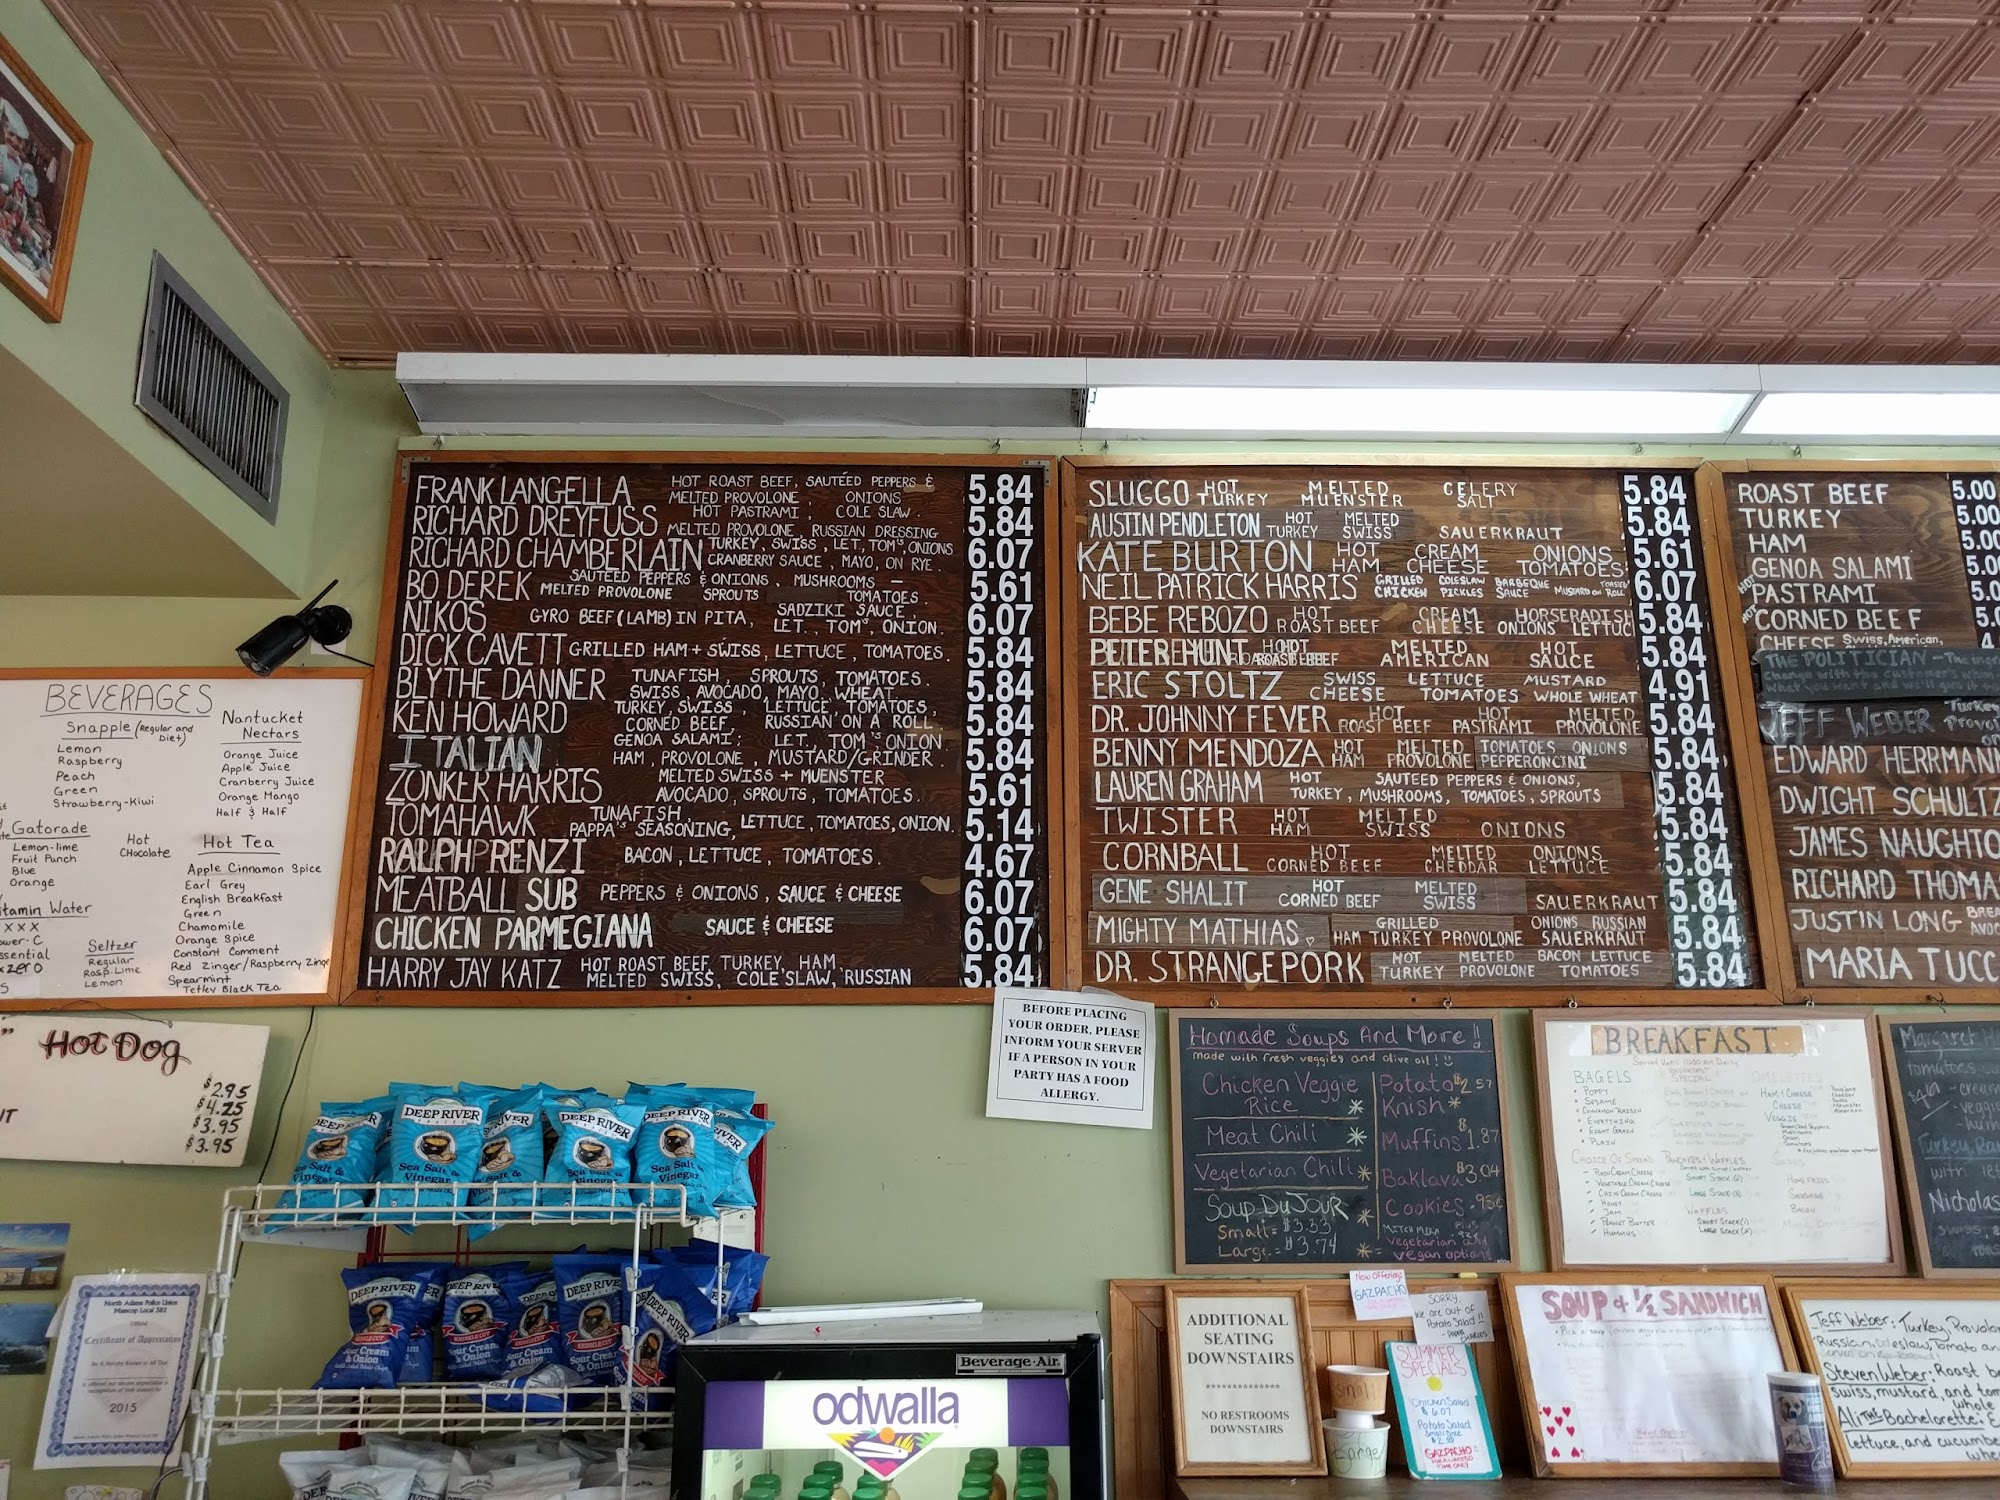 FRANK LANGELLA HOT ROAST BEEF, SAUTÉED PEPPERS & MELTED PROVOLONE, ONIONS 5.84
RICHARD DREYFUSS HOT PASTRAMI, COLE SLAW. MELTED PROVOLONE, RUSSIAN DRESSING 5.84
RICHARD CHAMBERLAIN TURKEY, SWISS, LET, TOM'S, ONIONS CRANBERRY SAUCE, MAYO, ON RYE. 6.07
BO DEREK SAUTÉED PEPPERS & ONIONS, MUSHROOMS — MELTED PROVOLONE SPROUTS TOMATOES. 5.61
NIKOS GYRO BEEF (LAMB) IN PITA, SADZIKI SAUCE, LET., TOM'S, ONION. 6.07
DICK CAVETT GRILLED HAM + SWISS, LETTUCE, TOMATOES. 5.84
BLYTHE DANNER TUNAFISH, SPROUTS, TOMATOES. SWISS, AVOCADO, MAYO, WHEAT. 5.84
KEN HOWARD TURKEY, SWISS, LETTUCE, TOMATOES, CORNED BEEF, RUSSIAN ON A ROLL. 5.84
ITALIAN GENOA SALAMI, LET, TOM'S ONION HAM, PROVOLONE, MUSTARD/GRINDER. 5.84
ZONKER HARRIS MELTED SWISS + MUENSTER AVOCADO, SPROUTS, TOMATOES. 5.61
TOMAHAWK TUNAFISH, PAPPA'S SEASONING, LETTUCE, TOMATOES, ONION. 5.14
RALPH RENZI BACON, LETTUCE, TOMATOES. 4.67
MEATBALL SUB PEPPERS & ONIONS, SAUCE & CHEESE 6.07
CHICKEN PARMEGIANA SAUCE & CHEESE 6.07
HARRY JAY KATZ HOT ROAST BEEF, TURKEY, HAM MELTED SWISS, COLE SLAW, RUSSIAN 5.84
SLUGGO HOT TURKEY MELTED MUENSTER CELERY SALT 5.84
AUSTIN PENDLETON HOT TURKEY MELTED SWISS SAUERKRAUT 5.84
KATE BURTON HOT HAM CREAM CHEESE ONIONS TOMATOES 5.61
NEIL PATRICK HARRIS GRILLED CHICKEN COLESLAW PICKLES BARBEQUE SAUCE MUSTARD ON TOASTED ROLL 6.07
BEBE REBOZO HOT ROAST BEEF CREAM CHEESE HORSERADISH ONIONS LETTUC 5.84
PETER HUNT HOT ROAST BEEF MELTED AMERICAN HOT SAUCE 5.84
ERIC STOLTZ SWISS CHEESE LETTUCE TOMATOES MUSTARD WHOLE WHEAT 4.91
DR. JOHNNY FEVER HOT ROAST BEEF HOT PASTRAMI MELTED PROVOLONE 5.84
BENNY MENDOZA HOT HAM MELTED PROVOLONE TOMATOES ONIONS PEPPERONCINI 5.84
LAUREN GRAHAM HOT TURKEY, SAUTEED PEPPERS & ONIONS, MUSHROOMS, TOMATOES, SPROUTS 5.84
TWISTER HOT HAM MELTED SWISS ONIONS 5.84
CORNBALL HOT CORNED BEEF MELTED CHEDDAR ONIONS LETTUCE 5.84
GENE SHALIT HOT CORNED BEEF MELTED SWISS SAUERKRAUT 5.84
MIGHTY MATHIAS GRILLED HAM TURKEY PROVOLONE ONIONS RUSSIAN SAUERKRAUT 5.84
DR. STRANGEPORK HOT TURKEY MELTED PROVOLONE BACON LETTUCE TOMATOES 5.84
ROAST BEEF 5.00
TURKEY 5.00
HAM 5.00
GENOA SALAMI 5.0
HOT PASTRAMI 5.0
HOT CORNED BEEF 5.0
CHEESE Swiss, American,
THE POLITICIAN
JEFF WEBER Turkey
EDWARD HERRMAN
DWIGHT SCHULTZ
JAMES NAUGHTO
RICHARD THOMA
JUSTIN LONG
MARIA TUCC
BEVERAGES
Snapple (Regular and Diet)
Lemon
Raspberry
Peach
Green
Strawberry-Kiwi
Nantucket Nectars
Orange Juice
Apple Juice
Cranberry Juice
Orange Mango
Half & Half
Gatorade
Lemon-lime
Fruit Punch
Blue
Orange
Hot CHocolate
Hot Tea
Apple Cinnamon Spice
Earl Grey
English Breakfast
Green
Chamomile
Orange Spice
Constant Comment
Red Zinger/Raspberry Zinger
Spearmint
Tetley Black Tea
itamin Water
XXX
ower-C
ssential
zero
Seltzer
Regular
Rasp. Lime
Lemon
Hot Dog
$2.95
$4.25
$3.95
$3.95
BEFORE PLACING
YOUR ORDER, PLEASE
INFORM YOUR SERVER
IF A PERSON IN YOUR
PARTY HAS A FOOD
ALLERGY.
Homade Soups And More!!
made with fresh veggies and olive oil!!
Chicken Veggie Rice *
Meat Chili *
Vegetarian Chili *
Soup DuJour *
Small = $3.33
Large = $3.74
Potato Knish * $2.57
Muffins $1.87
Baklava $3.04
Cookies .95¢
* = vegetarian and vegan options
BREAKFAST
BAGELS
POPPY
SESAME
CINNAMON RAISIN
EVERYTHING
EIGHT GRAIN
PLAIN
CHOICE OF SPREAD
PLAIN CREAM CHEESE
VEGETABLE CREAM CHEESE
HONEY
JAM
PEANUT BUTTER
HUMMUS
PANCAKES/WAFFLES
SHORT STACK (2)
LARGE STACK (3)
WAFFLES
SHORT STACK (1)
LARGE STACK (2)
OMELETTES
HAM & CHEESE
CHEESE
VEGGIE
HOME FRIES
SAUSAGE
BACON
DEEP RIVER
Sea Salt & Vinegar
DEEP RIVER
KRINKLE CUT
Sour Cream & Onion
North Adams Police Union
Masscop Local 382
Official
Certificate of Appreciation
2015
Beverage-Air
odwalla
ADDITIONAL
SEATING
DOWNSTAIRS
**************
NO RESTROOMS
DOWNSTAIRS
Now Offering:
GAZPACHO
SORRY,
We are out of
Potato Salad!!
- PAPPA CHARLIES
SUMMER SPECIALS
Chicken Salad
$6.07
Potato Salad
Small Size
GAZPACHO
FOR A LIMITED
TIME ONLY
Small
Large
SOUP & 1/2 SANDWICH
Jeff Weber: Turkey, Provolon
Steven Weber: Roast be
swiss, mustard, and tom
whole
Ali THE Bachelorette: E
lettuce, and cucumbe